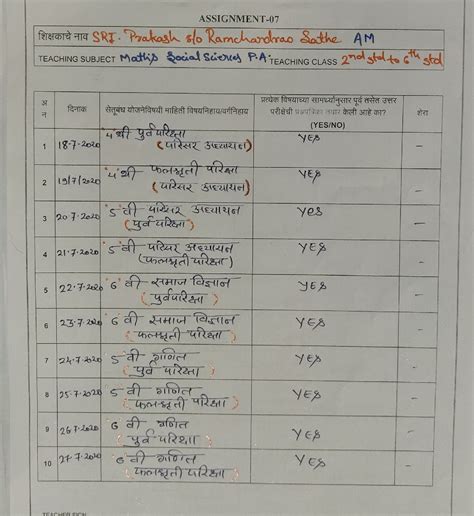 ASSIGNMENT-07
शिक्षकाचे नाव SRI. Prakash s/o Ramchandrao Sathe AM
TEACHING SUBJECT Maths Social Sciences P.A. TEACHING CLASS 2nd std to 6th std
अ न दिनांक सेतूबंध योजनेविषयी माहिती विषयनिहाय/वर्गनिहाय प्रत्येक विषयाच्या सामर्थ्यानुसार पूर्व तसेच उत्तर परीक्षेची प्रश्नपत्रिका तयार केली आहे का? (YES/NO) शेरा
1 18-7-2020 '4' थी पुर्व परिक्षा (परिसर अध्ययन) YES -
2 19/7/2020 '4' थी फलश्रृती परिक्षा (परिसर अध्ययन) YES -
3 20-7-2020 '5' वी परिसर अध्ययन (पुर्व परिक्षा) YES -
4 21-7-2020 '5' वी परिसर अध्ययन (फलश्रृती परिक्षा) YES -
5 22-7-2020 '6' वी समाज विज्ञान (पुर्व परिक्षा) YES -
6 23-7-2020 '6' वी समाज विज्ञान (फलश्रृती परिक्षा) YES -
7 24-7-2020 5 वी गणित (पुर्व परिक्षा) YES -
8 25-7-2020 5 वी गणित (फलश्रृती परिक्षा) YES -
9 26-7-2020 6 वी गणित (पुर्व परिक्षा) YES -
10 27-7-2020 6 वी गणित (फलश्रृती परिक्षा) YES -